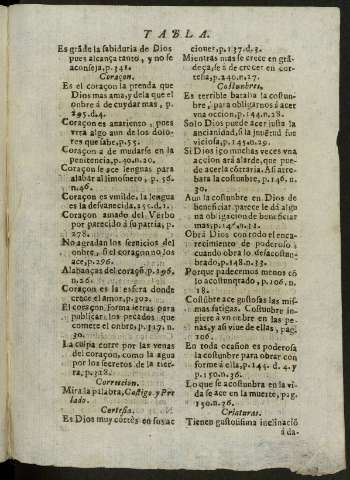 TABLA.
Es grãde la sabiduria de Dios
pues alcança tanto, y no se
aconseja, p.341.
Coraçon.
Es el coraçon la prenda que
Dios mas ama, y dela que el
onbre à de cuydar mas, p.
295.d.4.
Coraçon es avariento, pues
vsta algo aun de los dolo-
res que sabe, p.55.
Coraçon à de mudarse en la
penitencia, p.40.n.20.
Coraçon se ace lenguas para
alabar al limosnero, p. 56.
n.46.
Coraçon es vmilde, la lengua
es la desvanecida, 255.d.25.
Coraçon amado del Verbo
por parecido à su patria, p.
278.
No agradan los servicios del
onbre, si el coraçon no los
ace, p.296.
Alabanças del coraçõ, p.296.
n.26.
Coraçon es la esfera donde
crece el amor, p.302.
El coraçon forma letras para
publicar los pecados que
comete el onbre, p.317. n.
30.
La culpa corre por las venas
del coraçon, como la agua
por los secretos de la tier-
ra, p.318.
Correccion.
Mira la palabra, Castigo, y Pre
lado.
Cortesia.
Es Dios muy cortès en sus ac
ciones, p.137.d.3.
Mientras mas se crece en grã-
deça, se à de crecer en cor-
tesia, p.240.n.27.
Costunbres.
Es terrible batalla la costun-
bre, para obligarnos à acer
vna occion, p.144.n.28.
Solo Dios puede acer justa la
ancianidad, si la jubètud fue
viciosa, p.145.n.29.
Si Dios iço muchas veces vna
accion arà alarde, que pue-
de acer la cótraria. Asi arre-
bata la costunbre, p.146. n.
30.
Aun la costunbre en Dios de
beneficiar, parece le dà algo
na obligacion de beneficiar
mas, p.146.n.31.
Obra Dios con todo el enca-
recimiento de poderoso,
cuando obra lo desacostun-
brado, p.148.n.33.
Porque padecemos menos cõ
lo acostunbrado, p.106. n.
18.
Costũbre ace gustosas las mis-
mas fatigas. Costunbre in-
giere à vn onbre en las pe-
nas, y asi vive de ellas, pag.
106.
En toda ocasion es poderosa
la costunbre para obrar con
forme à ella, p.144. d. 4. y
p.150.n.36.
Lo que se acostunbra en la vi-
da se ace en la muerte, pag.
150.n.36.
Criaturas.
Tienen gustosisima inclinaciõ
à da-